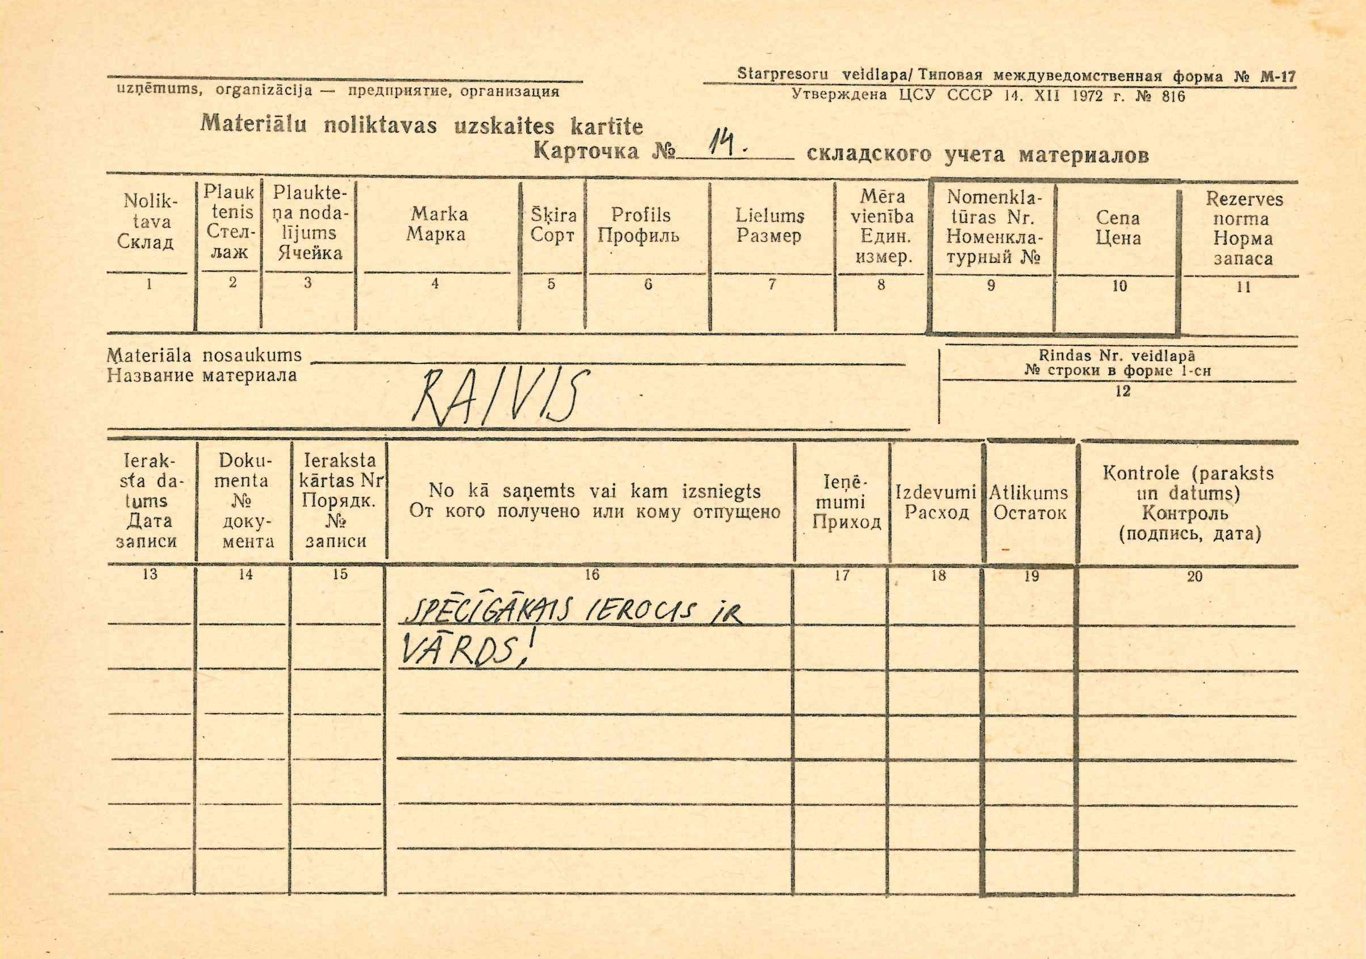 Starpresoru veidlapa/Типовая междуведомственная форма № М-17
uzņēmums, organizācija — предприятие, организация
Утверждена ЦСУ СССР 14. XII 1972 г. № 816
Materiālu noliktavas uzskaites kartīte
Карточка № 14. складского учета материалов
Nolik-
tava
Склад
Plauk
tenis
Стел-
лаж
Plaukte-
ņa noda-
lījums
Ячейка
Marka
Марка
Šķira
Сорт
Profils
Профиль
Lielums
Размер
Mēra
vienība
Един.
измер.
Nomenkla-
tūras Nr.
Номенкла-
турный №
Cena
Цена
Rezerves
norma
Норма
запаса
1 2 3 4 5 6 7 8 9 10 11
Materiāla nosaukums
Название материала
RAIVIS
Rindas Nr. veidlapā
№ строки в форме 1-сн
12
Ierak-
sta da-
tums
Дата
записи
Doku-
menta
№
доку-
мента
Ieraksta
kārtas Nr
Порядк.
№
записи
No kā saņemts vai kam izsniegts
От кого получено или кому отпущено
Ieņē-
mumi
Приход
Izdevumi
Расход
Atlikums
Остаток
Kontrole (paraksts
un datums)
Контроль
(подпись, дата)
13 14 15 16 17 18 19 20
SPĒCĪGĀKAIS IEROCIS IR
VĀRDS!